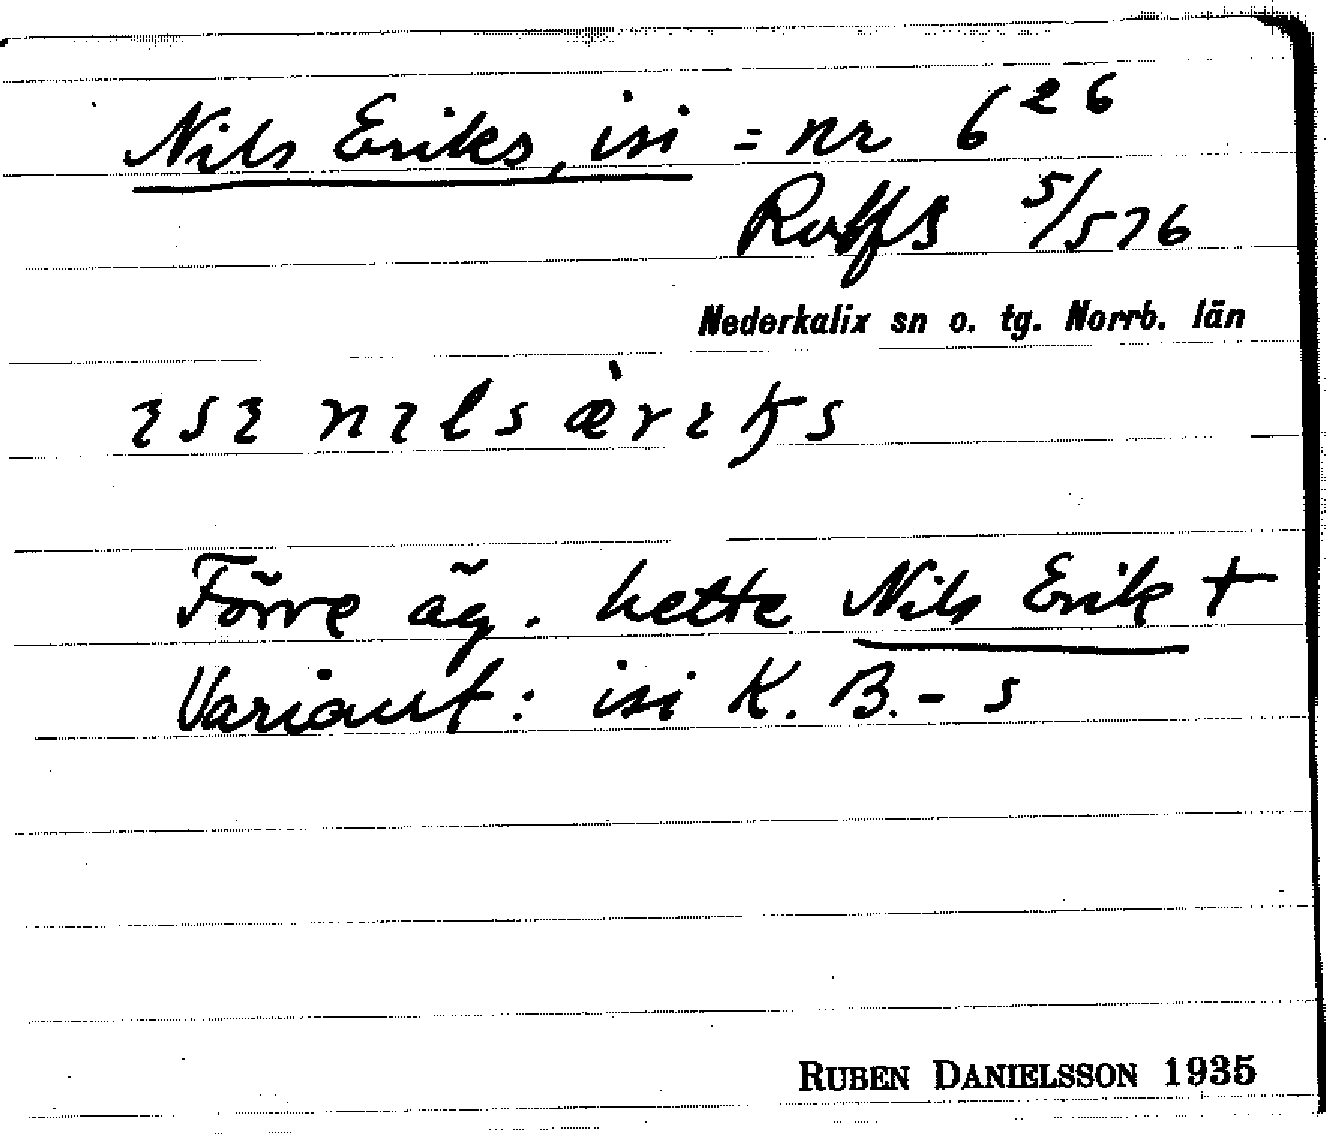 Nils Eriks, isi = nr 6²⁶
Rolfs 5/576
Nederkalix sn o. tg. Norrb. län
ısı nıls æ̀rıʞs
Förre äg. hette Nils Erik +
Variant: isi K. B. - s
RUBEN DANIELSSON 1935